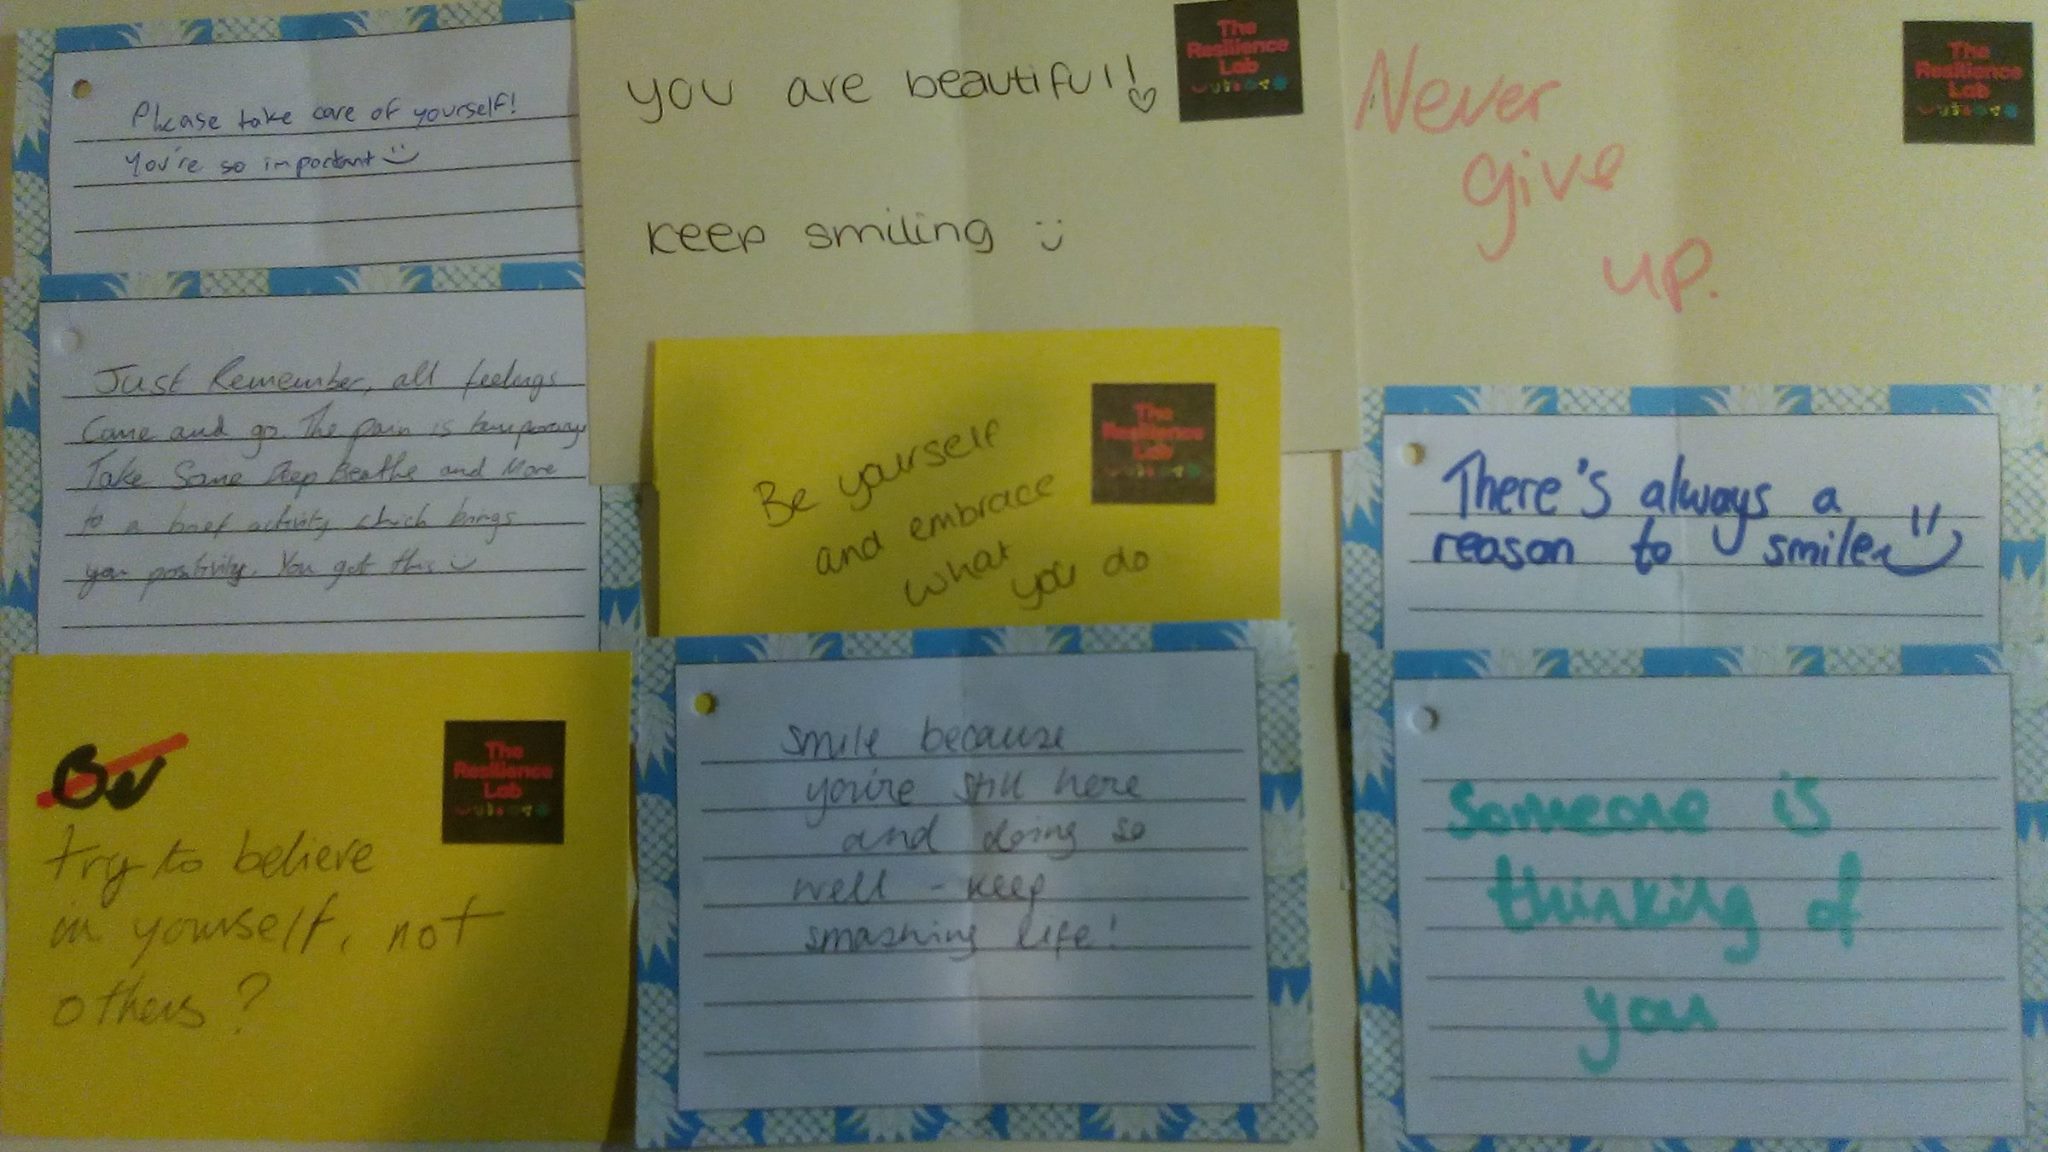 Please take care of yourself!
You're so important
Just Remember, all feelings
Come and go. The pain is temporary
Take Some Deep Breaths and Move
to a brief activity which brings
you positivity. You got this
Be
try to believe
in yourself, not
others?
The
Resilience
Lab
you are beautiful!
keep smiling
The
Resilience
Lab
Be yourself
and embrace
what
you do
The
Resilience
Lab
smile because
you're still here
and doing so
well - keep
smashing life!
Never
give
up.
The
Resilience
Lab
There's always a
reason to smile
Someone is
thinking of
you